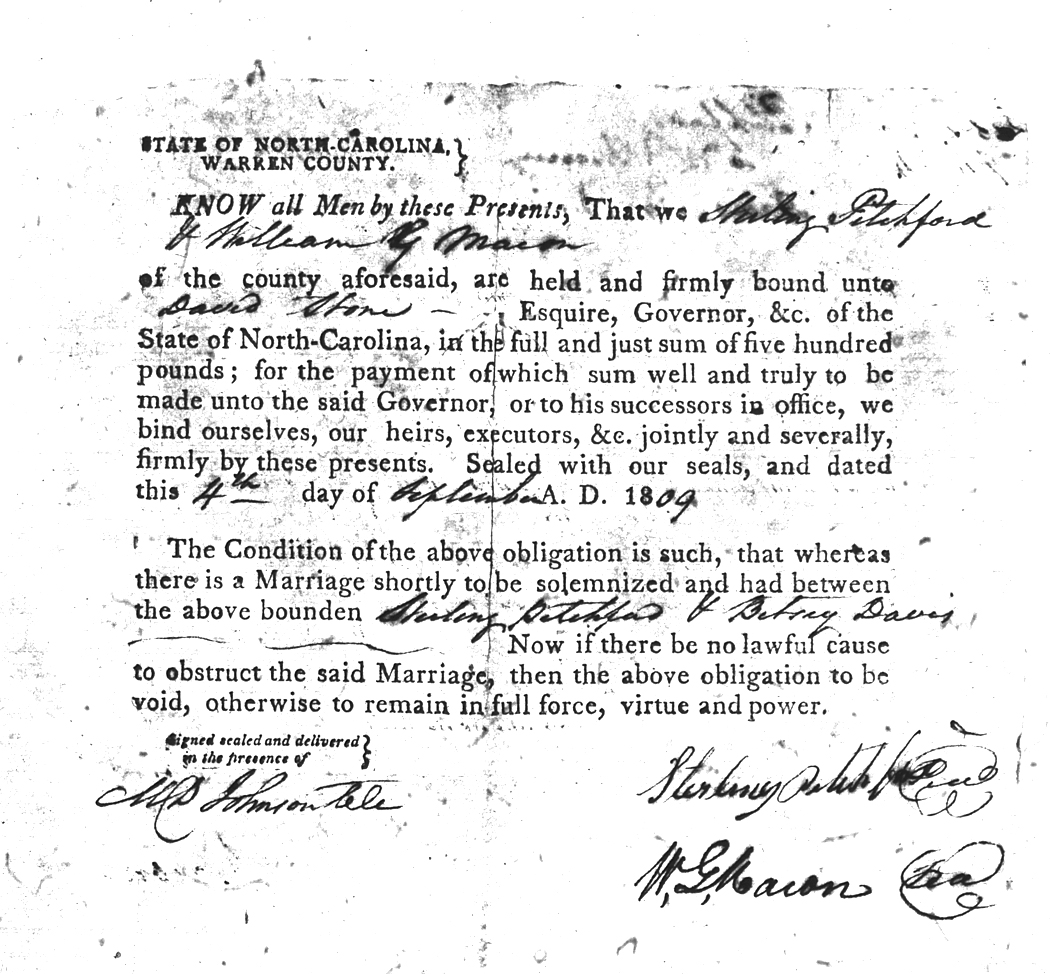 STATE OF NORTH-CAROLINA,
WARREN COUNTY.
KNOW all Men by these Presents, That we Sterling Pitchford
& William G Macon
of the county aforesaid, are held and firmly bound unto
David Stone – Esquire, Governor, &c. of the
State of North-Carolina, in the full and just sum of five hundred
pounds; for the payment of which sum well and truly to be
made unto the said Governor, or to his successors in office, we
bind ourselves, our heirs, executors, &c. jointly and severally,
firmly by these presents. Sealed with our seals, and dated
this 4th day of September A. D. 1809
The Condition of the above obligation is such, that whereas
there is a Marriage shortly to be solemnized and had between
the above bounden Sterling Pitchford & Betsey Davis
Now if there be no lawful cause
to obstruct the said Marriage, then the above obligation to be
void, otherwise to remain in full force, virtue and power.
Signed sealed and delivered
in the presence of
M D Johnson
Sterling Pitchford
W. G. Macon